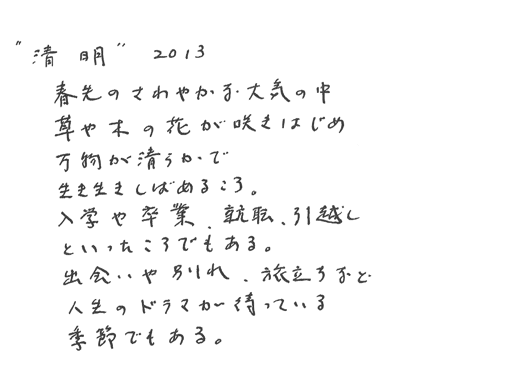 "清明" 2013
春先のさわやかな大気の中
草や木の花が咲きはじめ
万物が清らかで
生き生きしばめるころ。
入学や卒業、就職、引越し
といったころでもある。
出会いや別れ、旅立ちなど
人生のドラマが待っている
季節でもある。